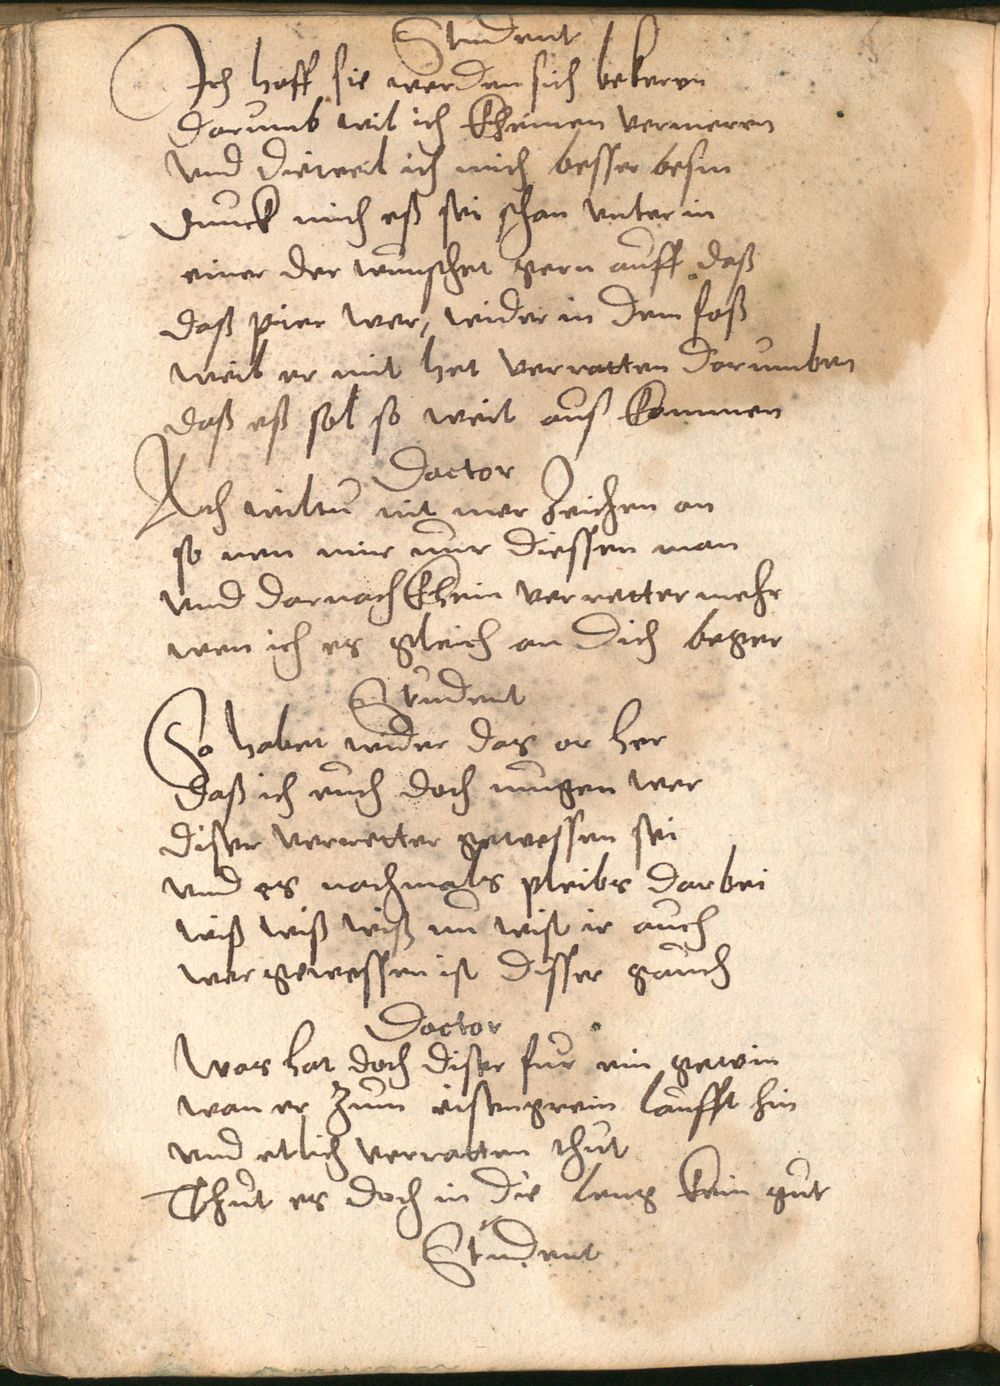 Student
Ich hoff sie werden sich bekeren
Darumb wil ich kheinen vermeren
Und dieweil ich mich besser besin
Dunck mich eß sei schan unter in
einer der wunschet gern auff daß
daß pier wer, wider in dem faß
weil er mit het verratten darumben
daß eß sol so weit auß kommen
Doctor
Ach wiltu nit mer zeichen an
so nen mir nur diessen man
und darnach khein verretter mehr
wen ich es gleich an dich beger
Student
So habet wider das or her
daß ich euch doch mugen wer
diser verretter gewessen sei
und es nachmals pleibs darbei
wiß wiß wiß nu wist ir auch
wer gewessen ist disser gauch
Doctor
Was hat doch diser fur ein gewin
wan er zum eisengrein laufft hin
und etlich verratten thut
Thut es doch in die leng kein gut
Student